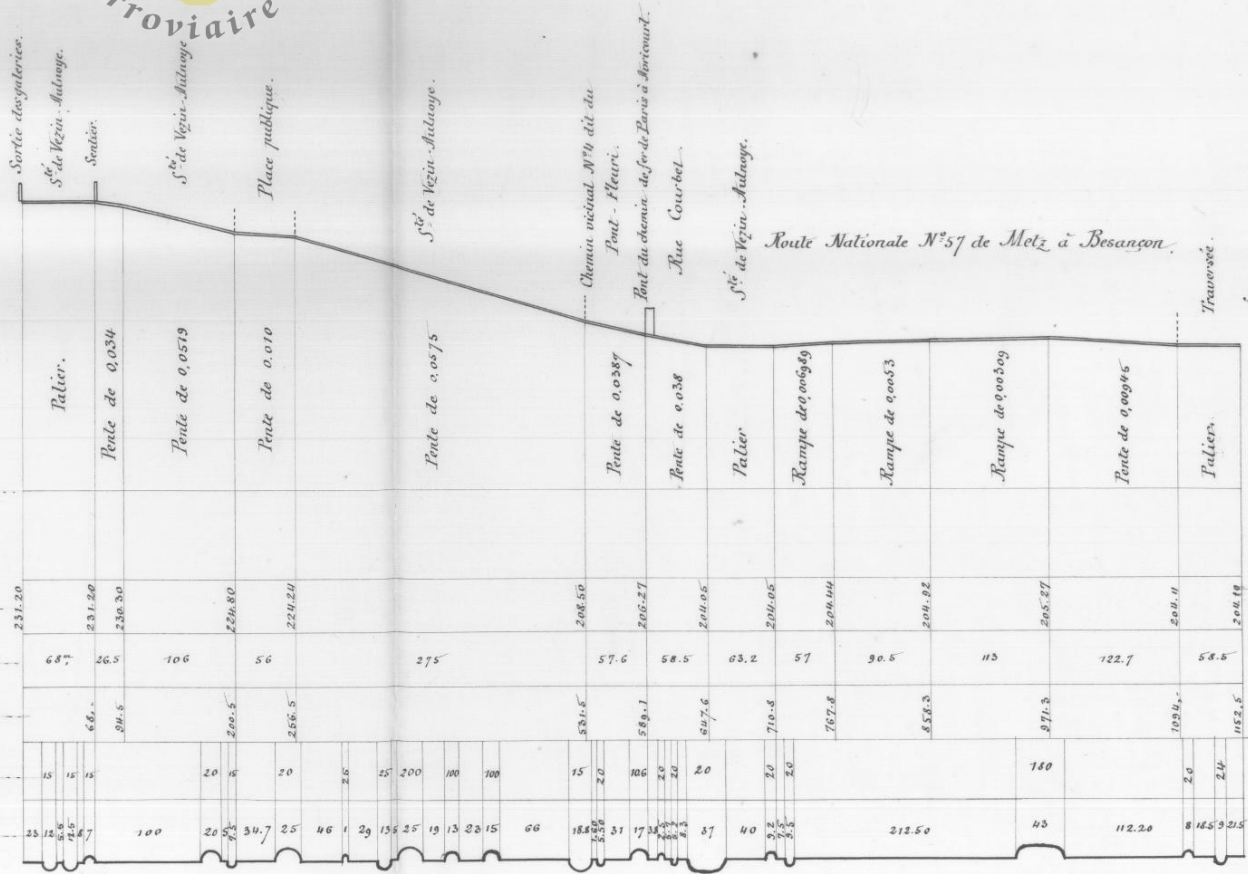 rroviaire
Sortie des galeries.
Sté de Vezin-Aulnoye.
Sentier.
Sté de Vezin-Aulnoye
Place publique.
Sté de Vezin-Aulnoye.
Chemin vicinal N°4 dit du
Pont-Fleuri.
Pont du chemin de fer de Paris à Avricourt.
Rue Courbet
Sté de Vezin-Aulnoye.
Route Nationale N°57 de Metz à Besançon.
Traversée.
Palier.
Pente de 0,034
Pente de 0,0519
Pente de 0.010
Pente de 0,0575
Pente de 0,0387
Pente de 0,038
Palier
Rampe de 0,006989
Rampe de 0,0053
Rampe de 0,00309
Pente de 0,00946
Palier.
231.20 231.20 230.30 224.80 224.24 208.50 206.27 204.05 204.05 204.44 204.92 205.27 204.11 204.10
68m 26.5 106 56 275 57.6 58.5 63.2 57 90.5 113 122.7 58.5
68,- 94.5 200.5 256.5 531.5 589.1 647.6 710.8 767.8 858.3 971.3 1094,- 1152,5
15 15 15 20 15 20 25 25 200 100 100 15 20 106 20 20 20 20 20 180 20 24
23 12 5.5 12.5 8 7 100 20 5 7.5 34.7 25 46 1 29 13.5 25 19 13 23 15 66 18.8 5.50 31 17 37 40 9.2 7.5 9.5 212.50 43 112.20 8 18.5 9 21.5